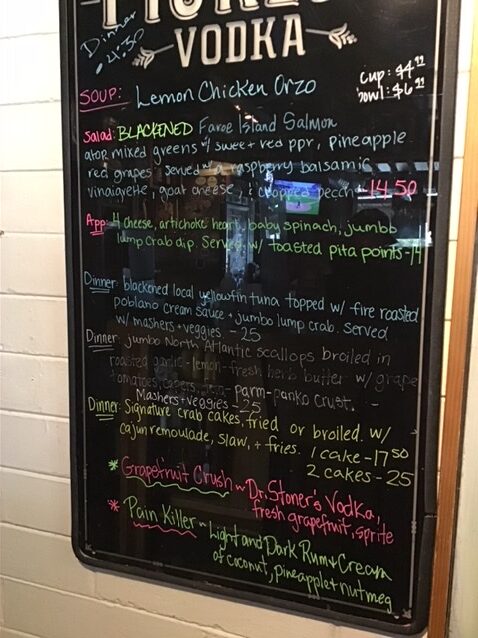 VODKA
Dinner
4/30
SOUP: Lemon Chicken Orzo
Cup: $4
bowl: $6
Salad: BLACKENED Faroe Island Salmon
atop mixed greens w/ sweet red ppr, pineapple
red grapes served w/ a raspberry balsamic
vinaigrette, goat cheese, + chopped pecan - 14.50
App: 4 cheese, artichoke heart, baby spinach, jumbo
lump crab dip. Served w/ toasted pita points - 14
Dinner: blackened local yellowfin tuna topped w/ fire roasted
poblano cream sauce + jumbo lump crab. Served
w/ mashers + veggies - 25
Dinner: jumbo North Atlantic scallops broiled in
roasted garlic - lemon - fresh herb butter w/ grape
tomatoes, capers, parm - panko crust. -
Mashers + veggies - 25
Dinner: Signature crab cakes, fried or broiled. w/
cajun remoulade, slaw, + fries. 1 cake - 17 50
2 cakes - 25
* Grapefruit Crush ~ Dr. Stoner's Vodka,
fresh grapefruit, sprite
* Pain Killer ~ Light and Dark Rum + Cream
of coconut, pineapple + nutmeg